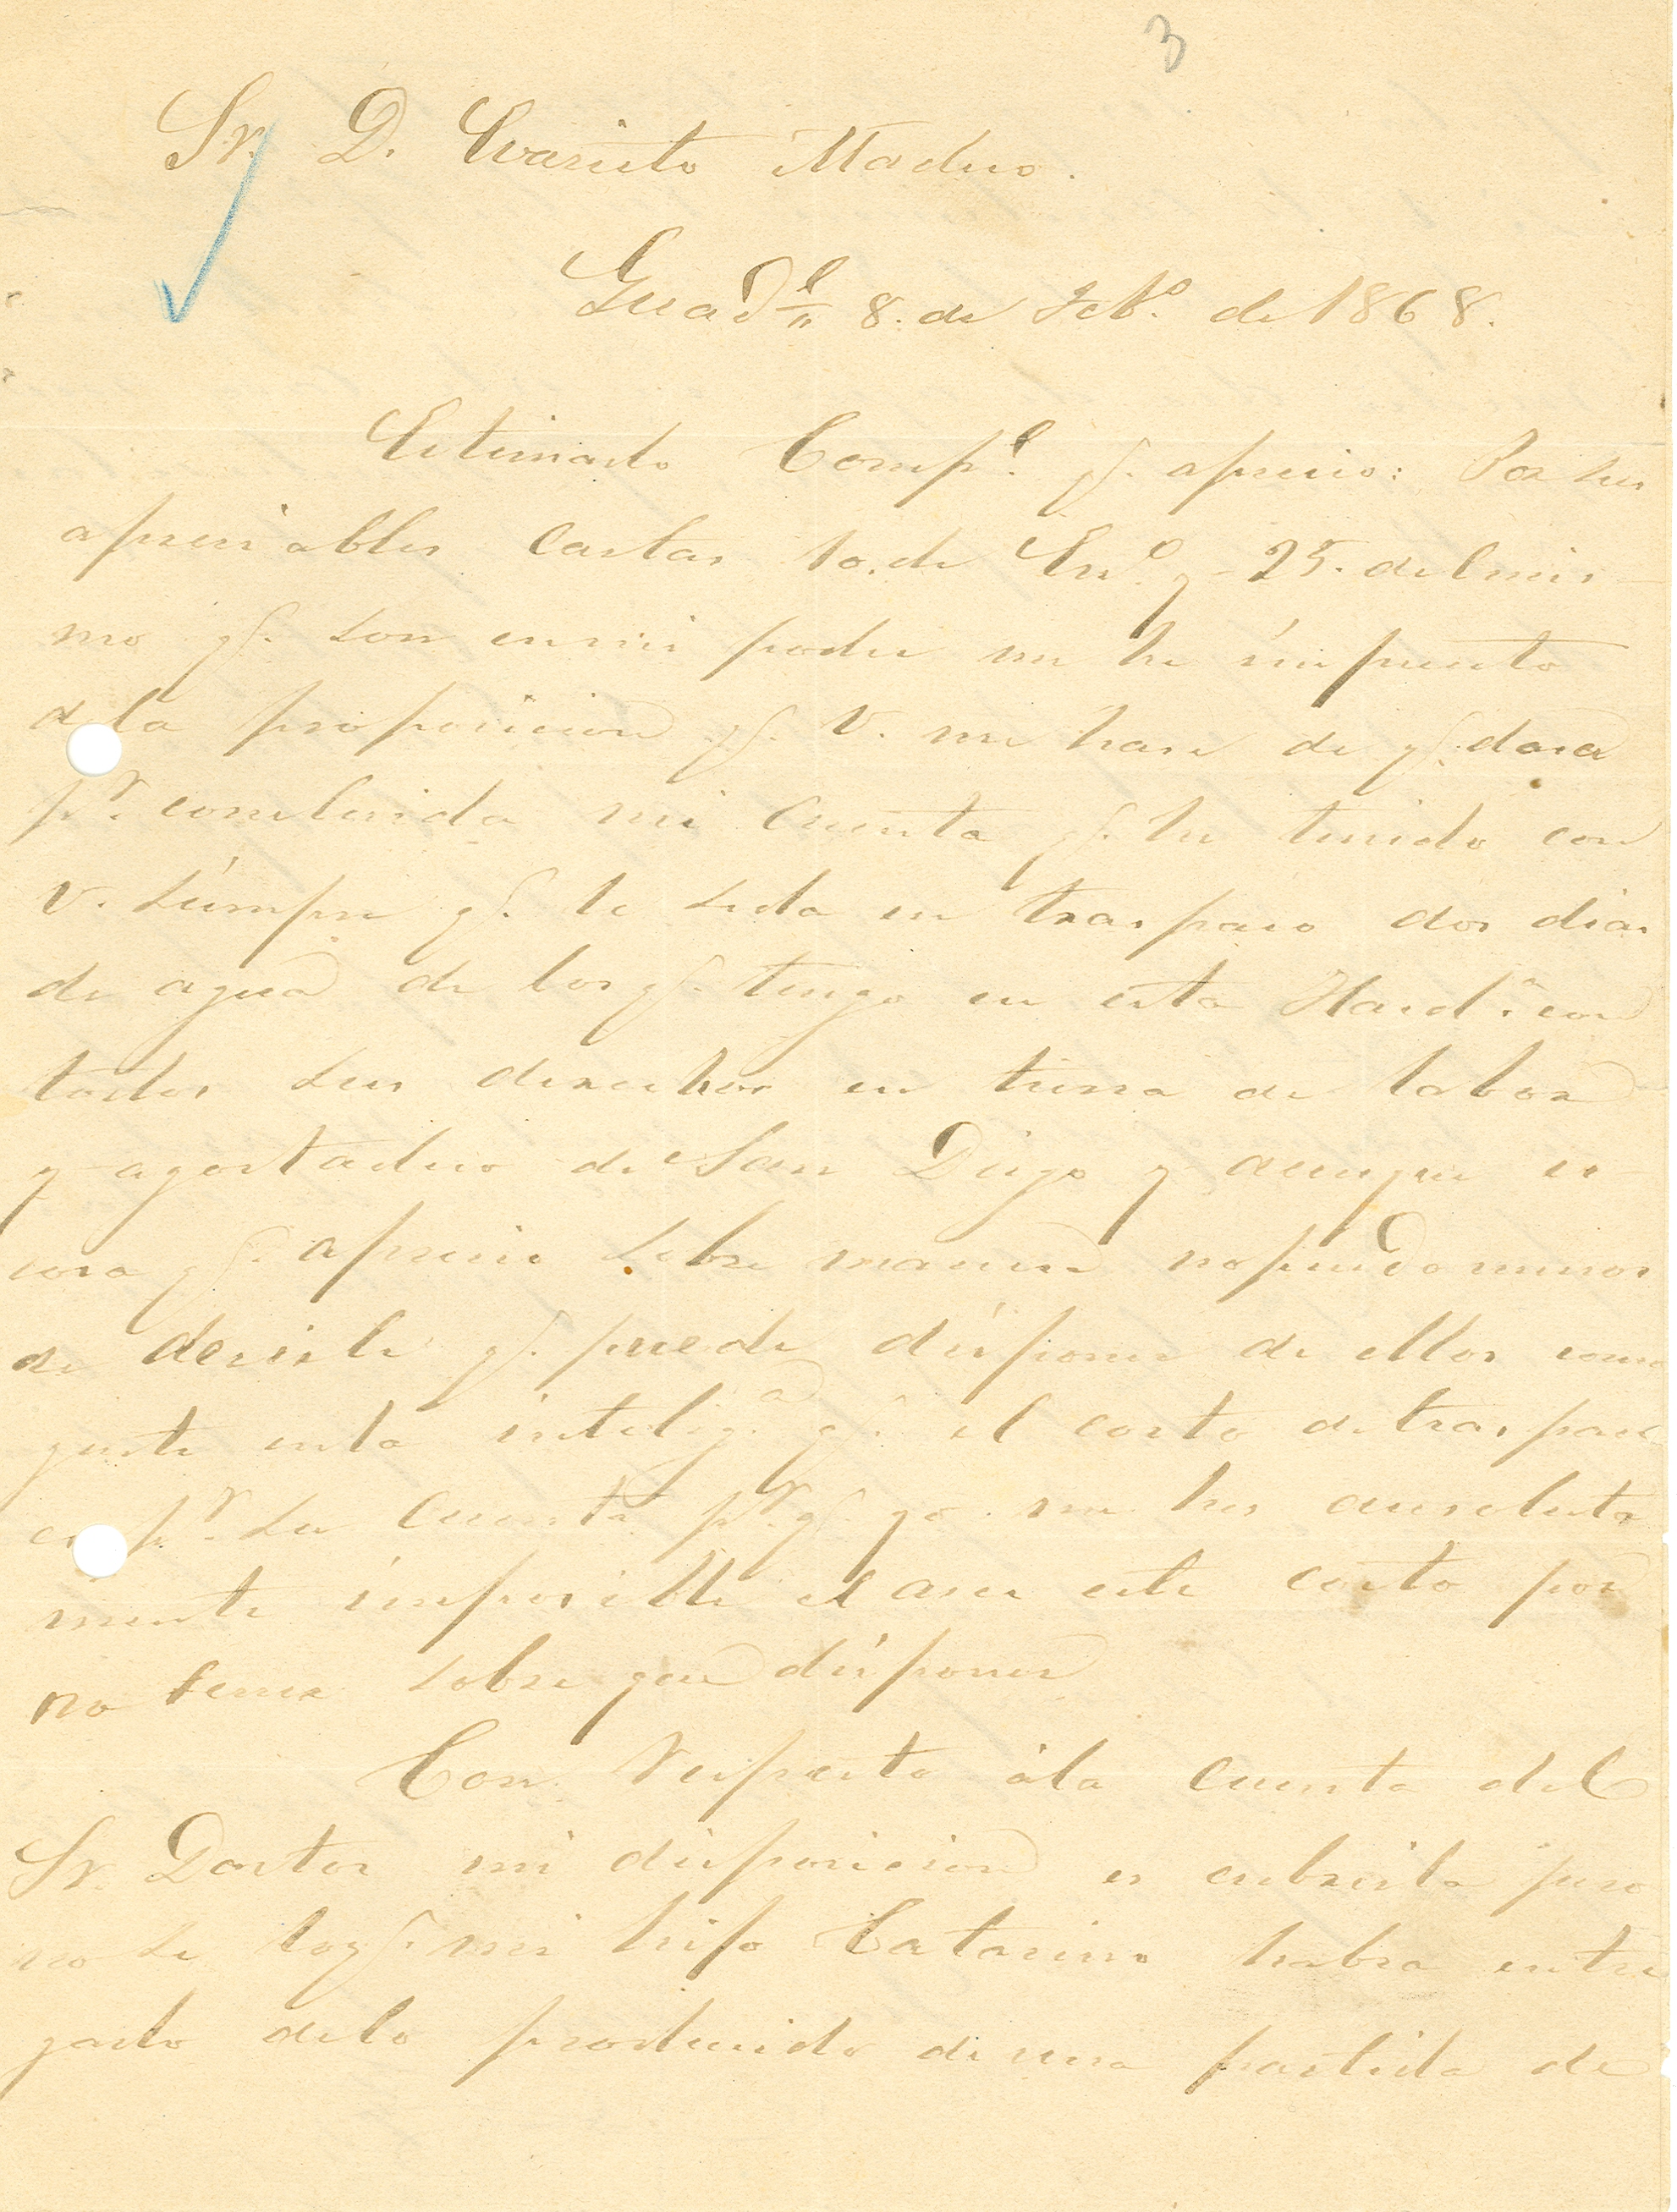 3
Sr. D. Evaristo Madero.
Guad.l 8. de Feb.o de 1868.
Estimado Comp.e q. aprecio: Por sus
apreciables cartas 10. de En.o y 25. del mis-
mo q. son en mi poder me he impuesto
de la proposicion q. V. me hase de q. dara
p.r concluida mi cuenta q. he tenido con
V. siempre q. le seda en traspaso dos dias
de agua de los q. tengo en esta Hacd.a con
todos sus derechos en tierra de labor
y agostadero de San Diego y aunque es
cosa q. aprecio sobre manera no puedo menos
de desirle q. puede disponer de ellos como
guste enla intelig.a q. el costo de traspaso
es p.r su cuenta p.r q. yo me hes auseluta
mente imposible el aser este costo por
no tener sobre que disponer
Con respecto àla cuenta del
Sr. Doctor mi disposicion es cubrirla pero
no se loq. mi hijo Catarino habra entre
gado delo producido de una partida de